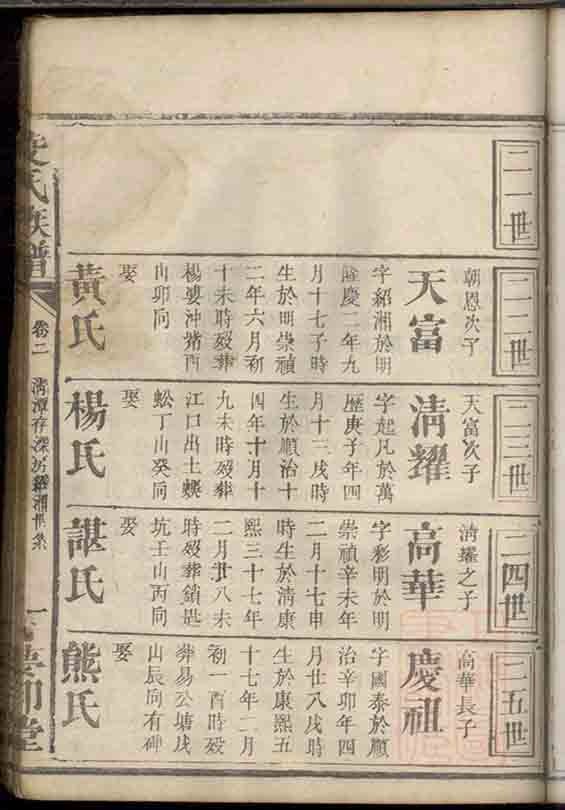 二一世
二二世
朝恩次子
天富
字紹湘於明
隆慶二年九
月十七子時
生於明崇禎
二年六月初
十未時歿葬
楊婆沖塘酉
山卯向
娶
黃氏
二三世
天富次子
清耀
字起凡於萬
歷庚子年四
月十三戌時
生於順治十
四年十月十
九未時歿葬
江口出土螟
蚣丁山癸向
娶
楊氏
二四世
清耀之子
高華
字彩明於明
崇禎辛未年
二月十七申
時生於清康
熙三十七年
二月廿八未
時歿葬鎖匙
坑壬山丙向
娶
諶氏
二五世
高華長子
慶祖
字國泰於順
治辛卯年四
月廿八戌時
生於康熙五
十七年二月
初一酉時歿
葬易公塘戌
山辰向有碑
娶
熊氏
氏族譜
卷二
清潭存深坊紹湘世系
一
堂